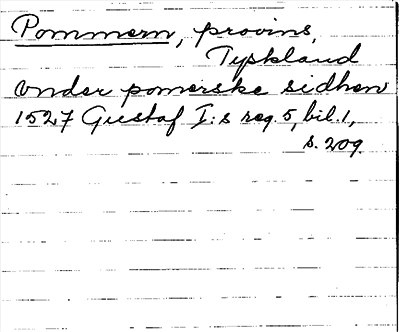 Pommern, provins,
Tyskland
vnder pomerske sidhen
1527 Gustaf I:s reg. 5, bil. 1,
s. 209.